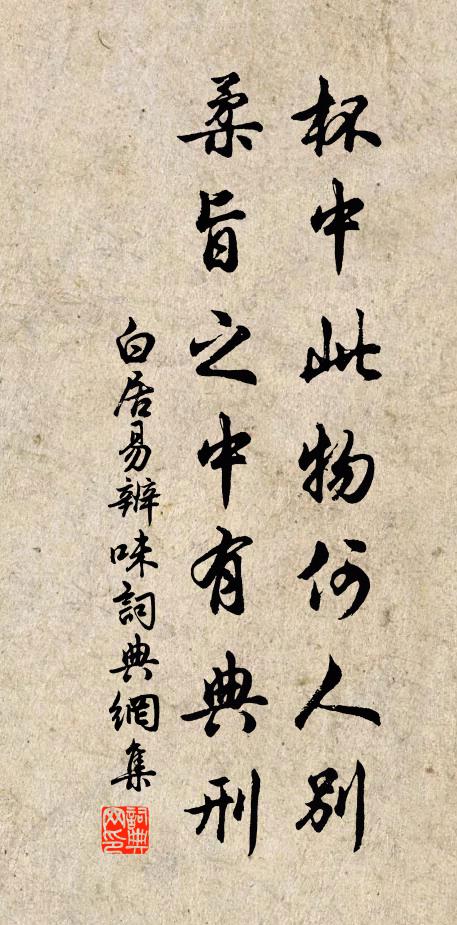 杯中此物何人別
柔旨之中有典刑
白居易辨味詞典網集
詞典網印